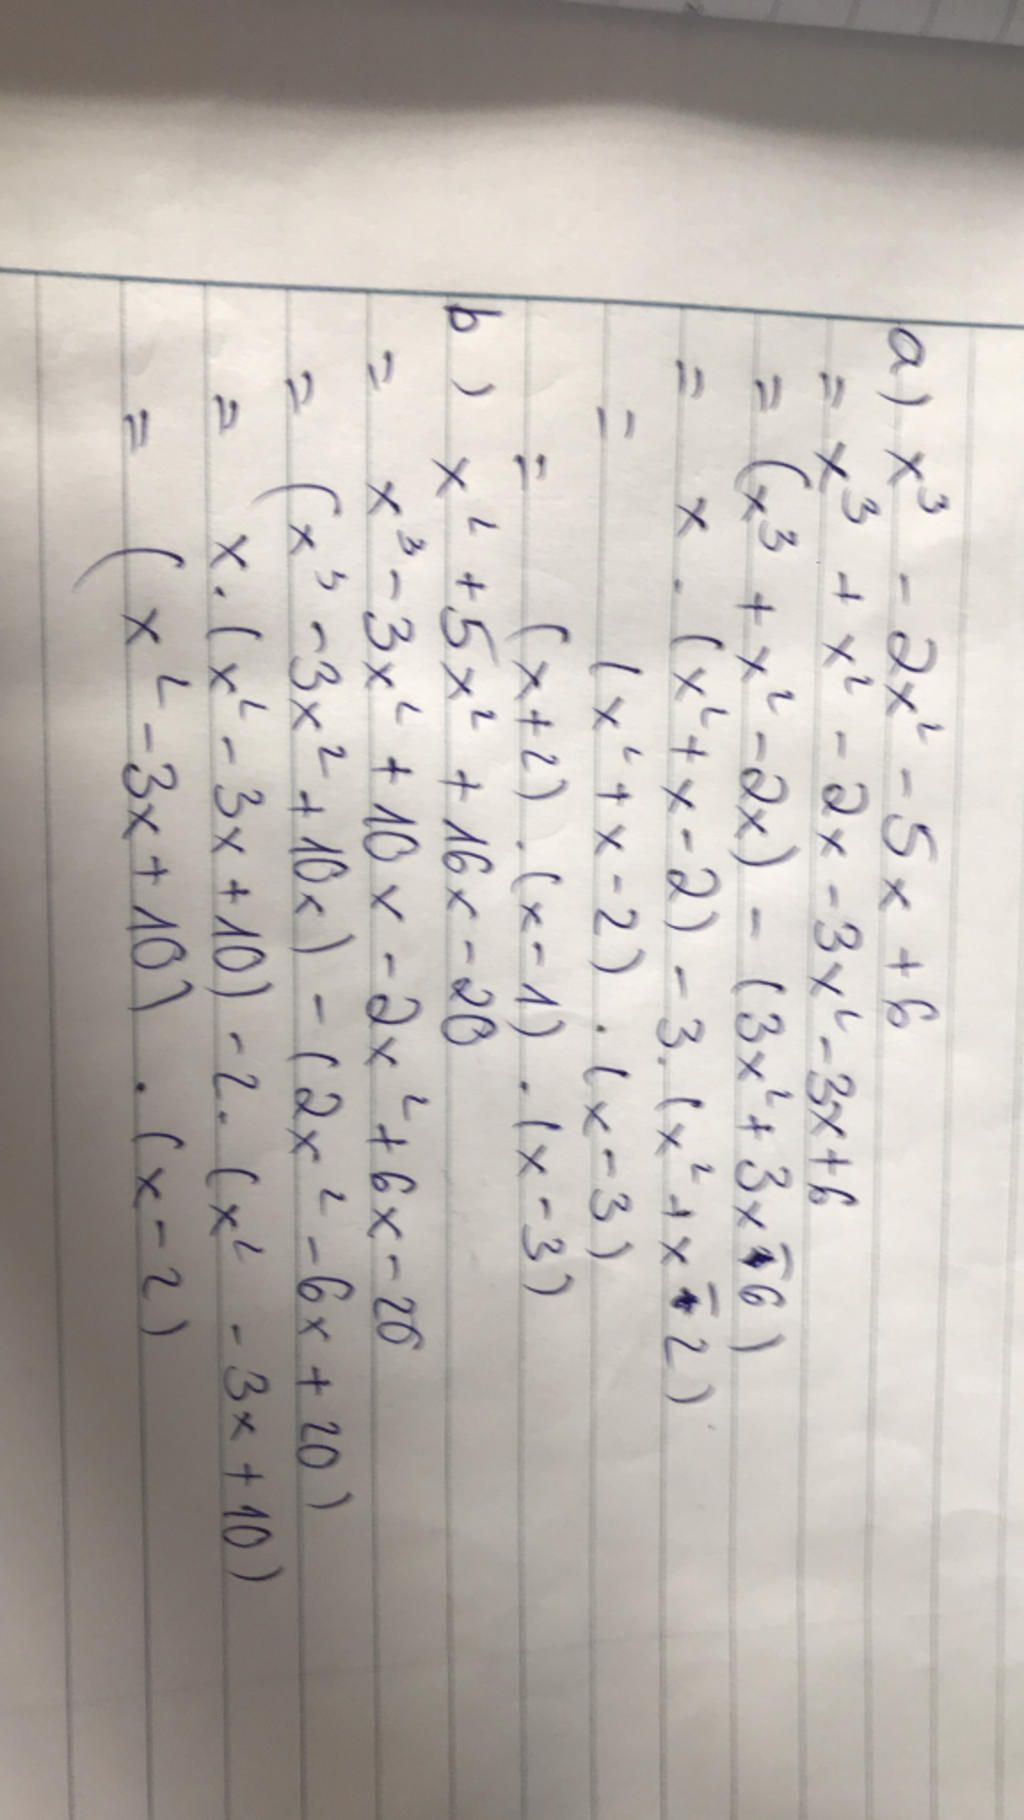 a) x³ - 2x² - 5x + 6
= x³ + x² - 2x - 3x² - 3x + 6
= (x³ + x² - 2x) - (3x² + 3x - 6)
= x . (x² + x - 2) - 3. (x² + x - 2)
= (x² + x - 2) . (x - 3)
= (x + 2) . (x - 1) . (x - 3)
b) x² + 5x² + 16x - 20
= x³ - 3x² + 10x - 2x² + 6x - 20
= (x³ - 3x² + 10x) - (2x² - 6x + 20)
= x. (x² - 3x + 10) - 2. (x² - 3x + 10)
= (x² - 3x + 10) . (x - 2)